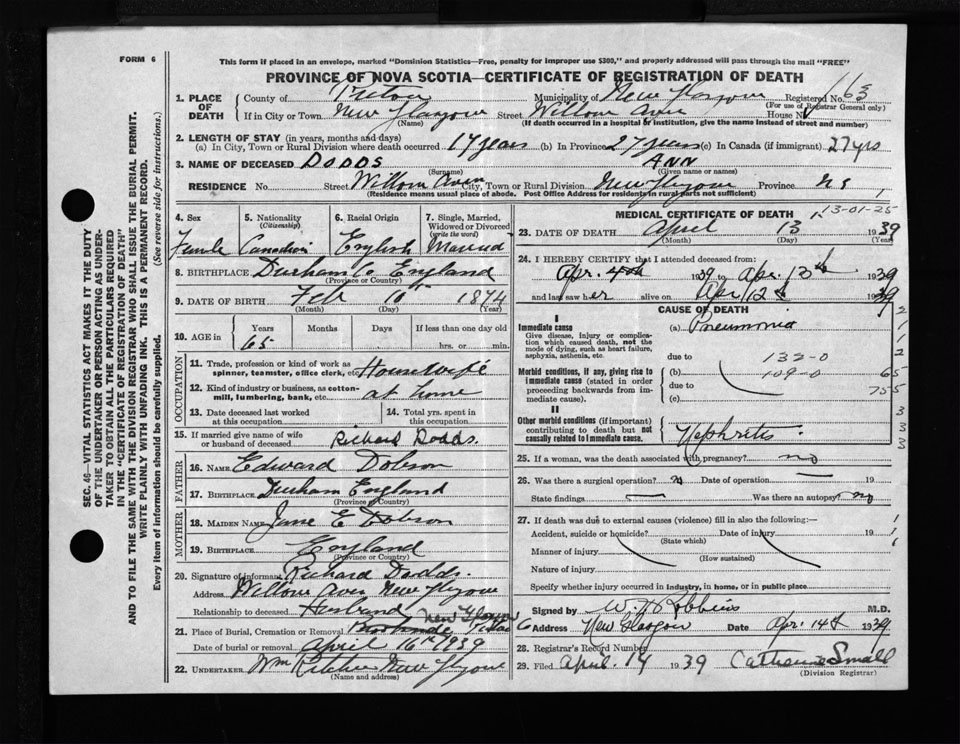 FORM 6
This form if placed in an envelope, marked "Dominion Statistics—Free, penalty for improper use $300," and properly addressed will pass through the mail "FREE"
PROVINCE OF NOVA SCOTIA—CERTIFICATE OF REGISTRATION OF DEATH
1. PLACE OF DEATH County of Pictou Municipality of New Glasgow Registered No. 163
(For use of Registrar General only)
If in City or Town New Glasgow Street House No.
(If death occurred in a hospital or institution, give the name instead of street and number)
2. LENGTH OF STAY (in years, months and days)
(a) In City, Town or Rural Division where death occurred 17 years (b) In Province 27 years (c) In Canada (if immigrant) 27 yrs
3. NAME OF DECEASED DODDS ANN
(Surname) (Given name or names)
RESIDENCE No. Street City, Town or Rural Division New Glasgow Province NS
(Residence means usual place of abode. Post Office Address for residents in rural parts not sufficient)
4. Sex Female
5. Nationality (Citizenship) Canadian
6. Racial Origin English
7. Single, Married, Widowed or Divorced (write the word) Married
8. BIRTHPLACE Durham Co England
(Province or Country)
9. DATE OF BIRTH Feb 10 1874
(Month) (Day) (Year)
10. AGE in Years Months Days If less than one day old
65 hrs. or min.
OCCUPATION
11. Trade, profession or kind of work as spinner, teamster, office clerk, etc. Housewife
12. Kind of industry or business, as cotton-mill, lumbering, bank, etc. at home
13. Date deceased last worked at this occupation
14. Total yrs. spent in this occupation
15. If married give name of wife or husband of deceased Richard Dodds.
FATHER
16. NAME Edward Dobson
17. BIRTHPLACE Durham England
(Province or Country)
MOTHER
18. MAIDEN NAME Jane E Dobson
19. BIRTHPLACE England
(Province or Country)
20. Signature of informant Richard Dodds.
Address New Glasgow
Relationship to deceased Husband
21. Place of Burial, Cremation or Removal New Glasgow Pictou Co
Date of burial or removal April 16th 1939
22. UNDERTAKER Wm New Glasgow
(Name and address)
MEDICAL CERTIFICATE OF DEATH 13-01-25
23. DATE OF DEATH April 13 1939
(Month) (Day) (Year)
24. I HEREBY CERTIFY that I attended deceased from:
Apr. 4th 1939 to Apr. 13th 1939
and last saw her alive on Apr 12th 1939
CAUSE OF DEATH
I
Immediate cause (a) Pneumonia
Give disease, injury or complication which caused death, not the mode of dying, such as heart failure, asphyxia, asthenia, etc.
due to 132-0
Morbid conditions, if any, giving rise to immediate cause (stated in order proceeding backwards from immediate cause).
(b) 109-0 65
due to 755
(c)
II
Other morbid conditions (if important) contributing to death but not causally related to immediate cause.
Nephritis
2
1
1
2
3
3
3
25. If a woman, was the death associated with pregnancy? no
26. Was there a surgical operation? no Date of operation 19
State findings Was there an autopsy? no
27. If death was due to external causes (violence) fill in also the following:—
Accident, suicide or homicide? Date of injury 19
(State which)
Manner of injury
(How sustained)
Nature of injury
Specify whether injury occurred in industry, in home, or in public place
Signed by M.D.
Address New Glasgow Date Apr. 14th 1939
28. Registrar's Record Number
29. Filed April 14 1939 Catherine Small
(Division Registrar)
SEC. 46—VITAL STATISTICS ACT MAKES IT THE DUTY
OF THE UNDERTAKER OR PERSON ACTING AS UNDER-
TAKER TO OBTAIN ALL THE PARTICULARS REQUIRED
IN THE "CERTIFICATE OF REGISTRATION OF DEATH"
AND TO FILE THE SAME WITH THE DIVISION REGISTRAR WHO SHALL ISSUE THE BURIAL PERMIT.
WRITE PLAINLY WITH UNFADING INK. THIS IS A PERMANENT RECORD.
Every item of information should be carefully supplied. (See reverse side for instructions.)